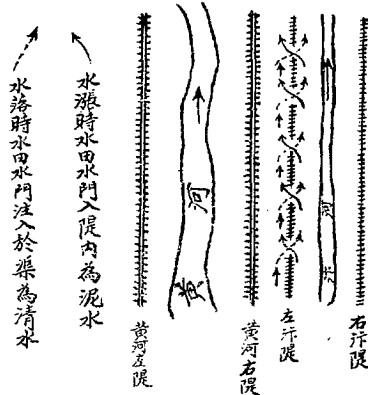 右汴隄
汴河
左汴隄
黄河右隄
黄河
黄河左隄
水漲時水由水門入隄内為泥水
水落時水由水門注入於渠為清水